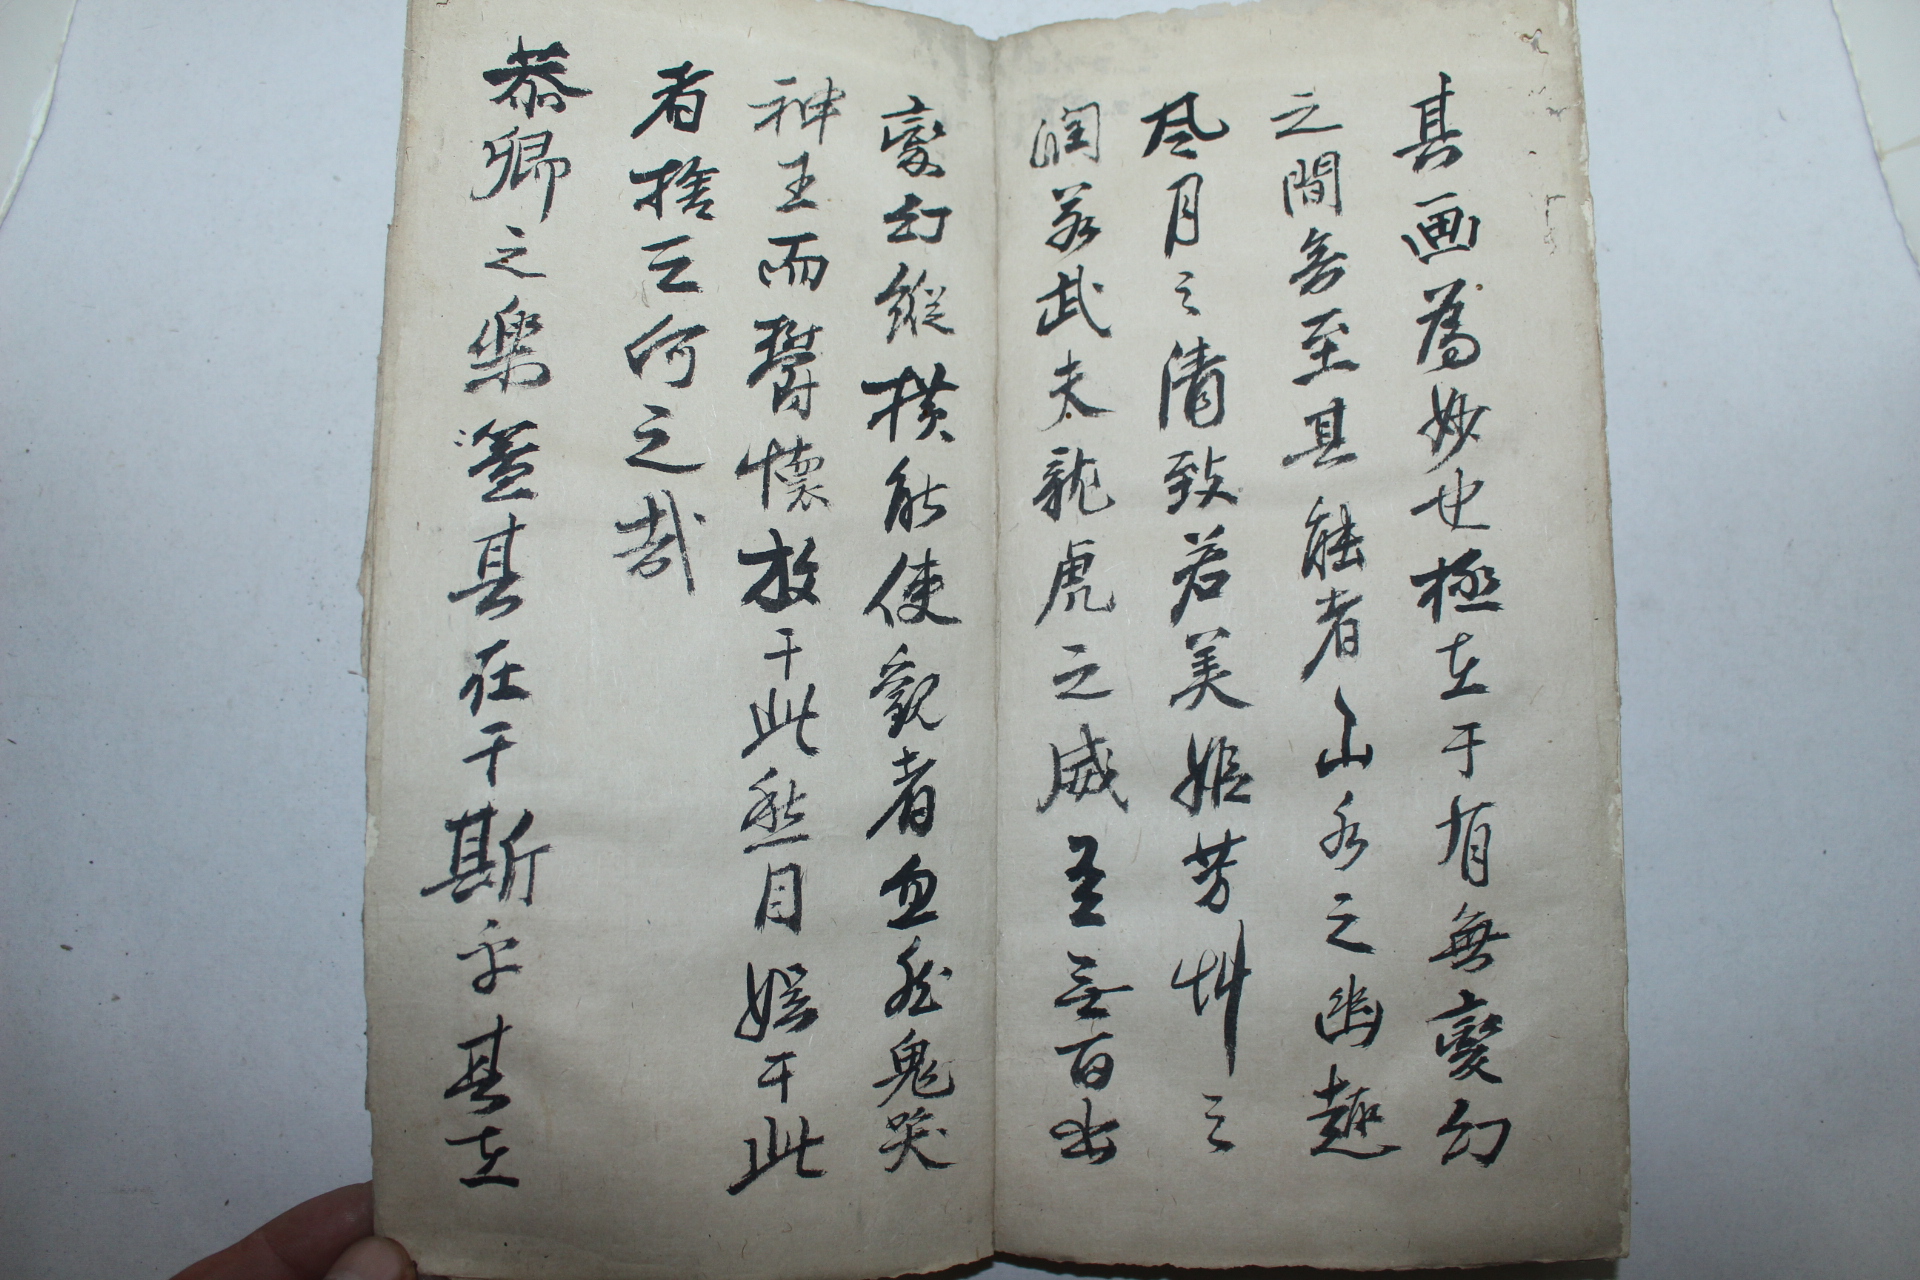 其画為妙也極在于有無變幻
之間矣至其能者山水之幽趣
風月之清致若美姬芳艸之
潤若武夫龍虎之威至矣百出
變幻縱横能使觀者血飛鬼哭
神王而鬱懷放于此愁目娯于此
者捨之何之哉
恭卿之樂蓋其在于斯乎其在